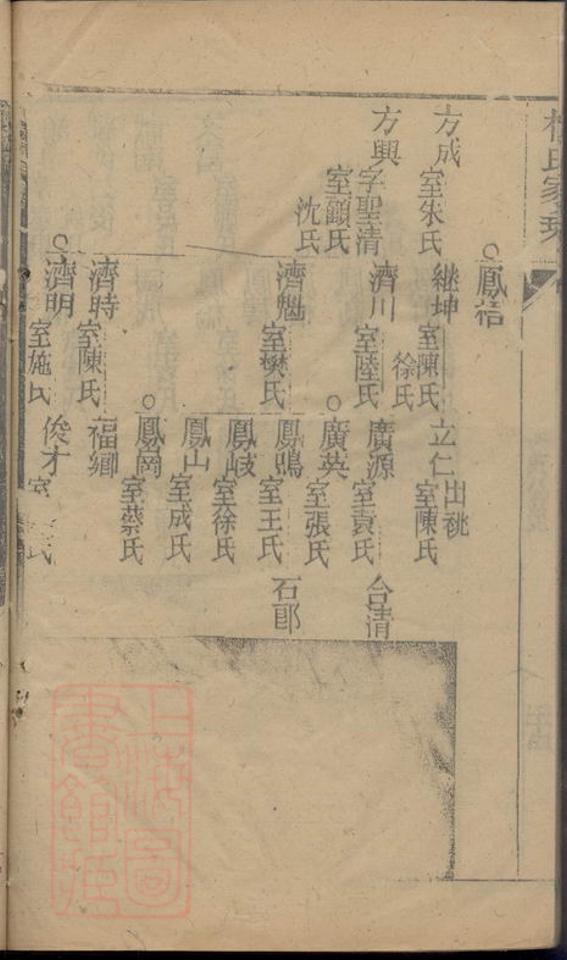 氏家乘
鳳梧
方成
室朱氏
継坤
室陳氏
徐氏
立仁
出祧
室陳氏
方興
字聖清
室顧氏
沈氏
濟川
室陸氏
廣源
室袁氏
合清
廣英
室張氏
濟魁
室樊氏
鳳鳴
室王氏
石郎
鳳岐
室徐氏
鳳山
室成氏
鳳崗
室蔡氏
濟時
室陳氏
福卿
濟明
室施氏
俊才
室
氏
上海圖
書館藏